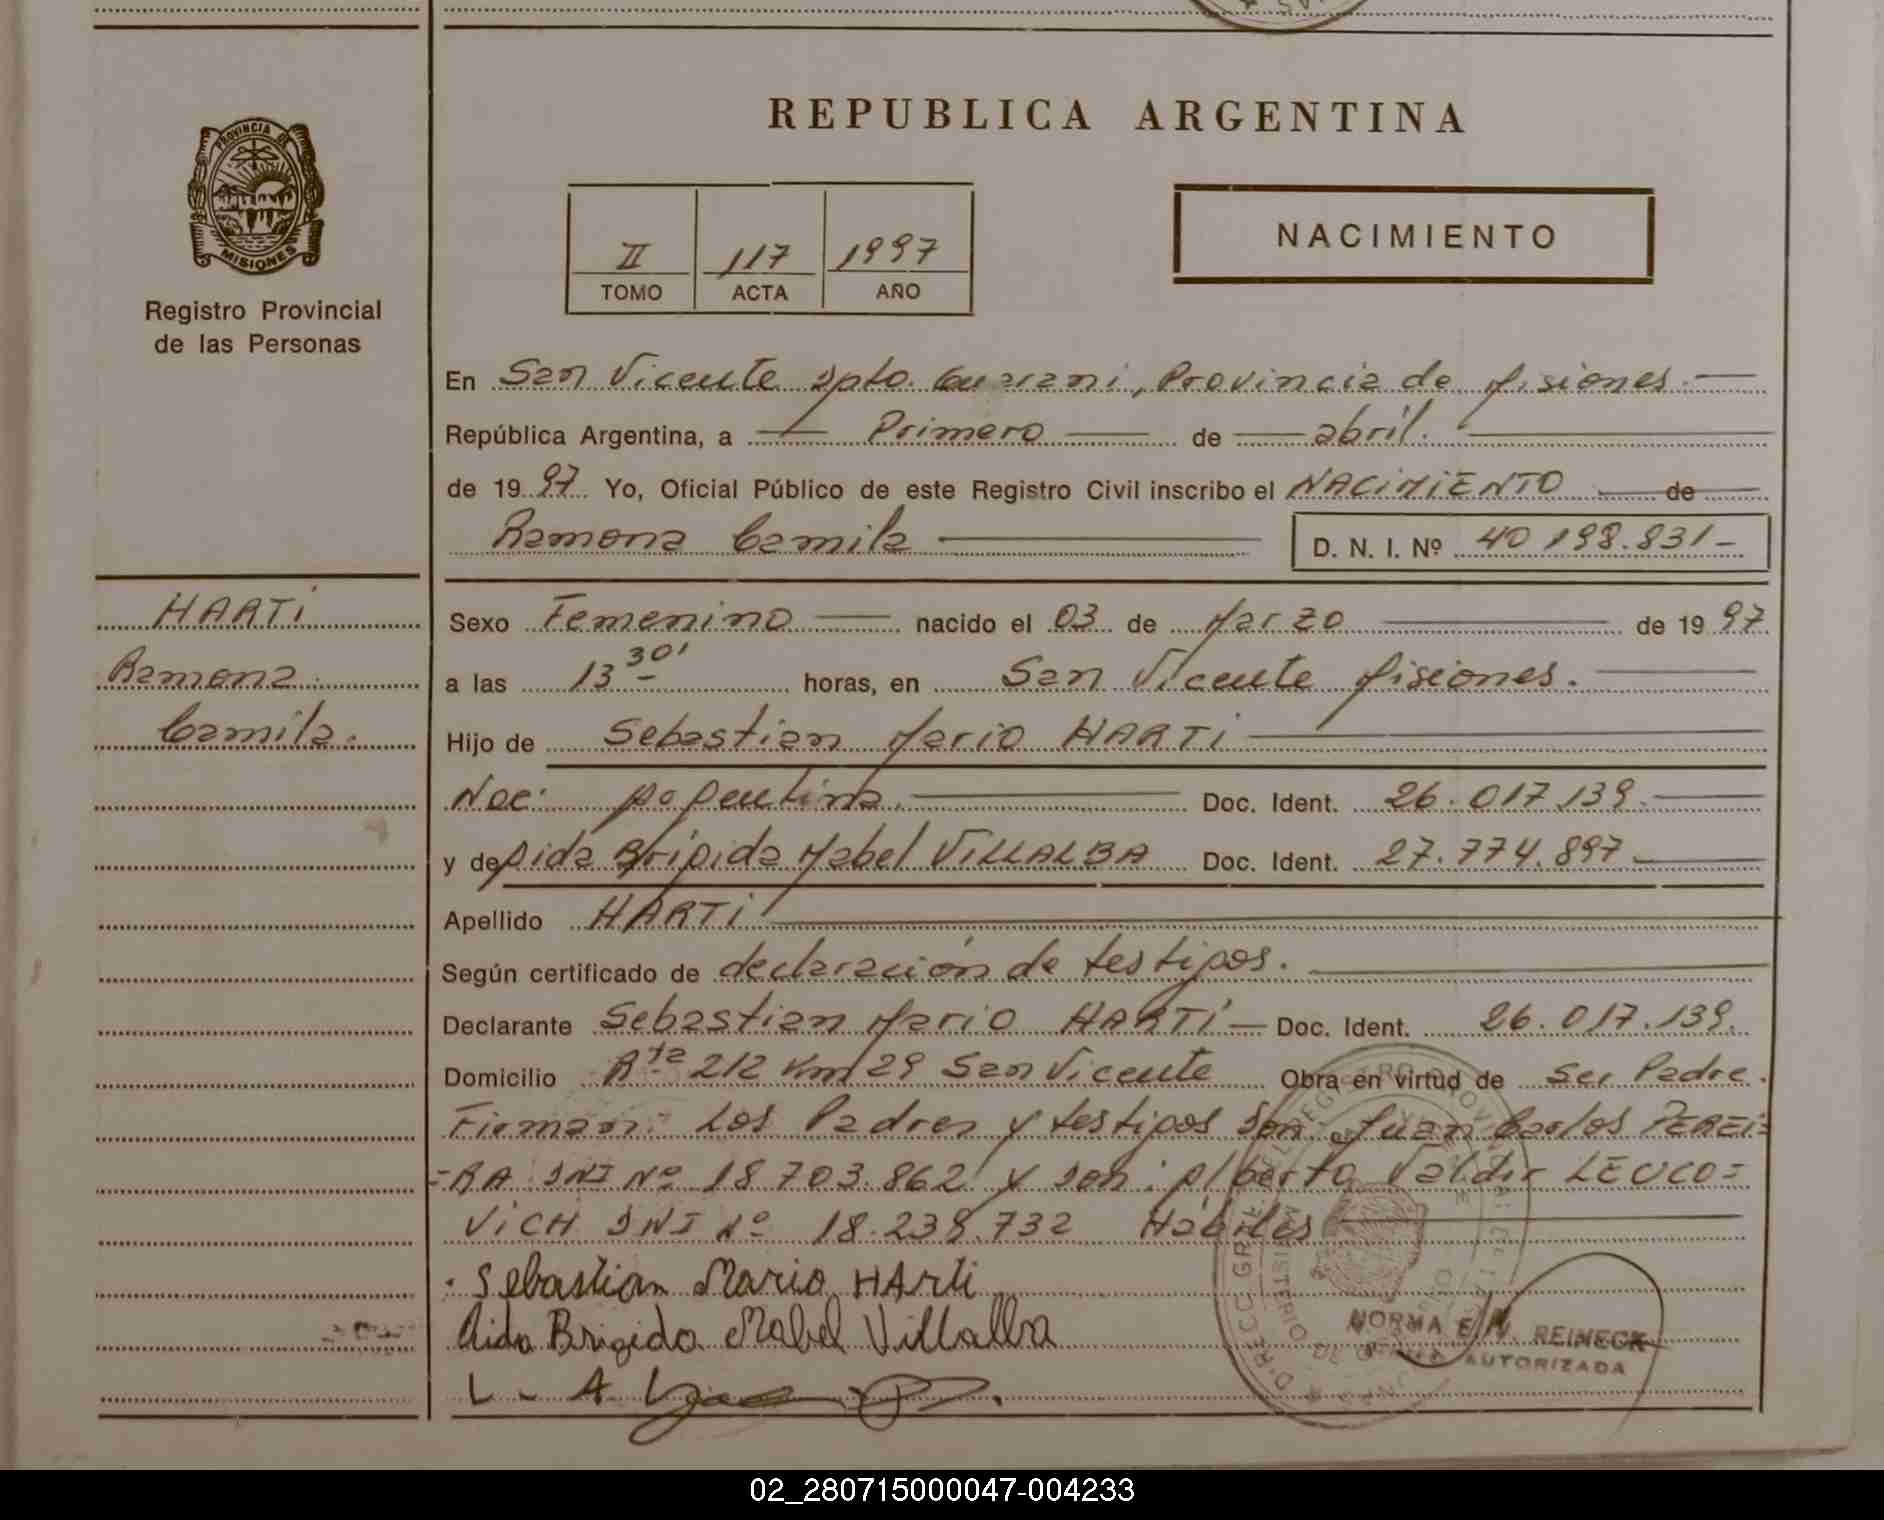 REPUBLICA ARGENTINA
PROVINCIA DE
MISIONES
Registro Provincial
de las Personas
II 117 1997
TOMO ACTA AÑO
NACIMIENTO
En San Vicente Dpto. Guarani, Provincia de Misiones.
República Argentina, a Primero de abril.
de 1997 Yo, Oficial Público de este Registro Civil inscribo el NACIMIENTO de
Ramona Camila
D. N. I. Nº 40 198.831-
HARTI
Ramona
Camila.
Sexo Femenino nacido el 03 de Marzo de 1997
a las 13 30' horas, en San Vicente Misiones.
Hijo de Sebastian Mario HARTI
Nac: Argentina. Doc. Ident. 26.017.139.
y de Aida Brigida Mabel VILLALBA Doc. Ident. 27.774.897
Apellido HARTI
Según certificado de declaración de testigos.
Declarante Sebastian Mario HARTI Doc. Ident. 26.017.139.
Domicilio Rta 212 Km 29 San Vicente Obra en virtud de Ser Padre.
Firman: Los Padres y testigos Son: Juan Carlos PEREI=
=RA DNI Nº 18 703.862 y son: Alberto Valdir LEUCO=
VICH DNI Nº 18.239.732 Habiles
Sebastian Mario HArti
Aida Brigida Mabel Villalba
L - A
NORMA E. N. REINECK
AUTORIZADA
02_280715000047-004233